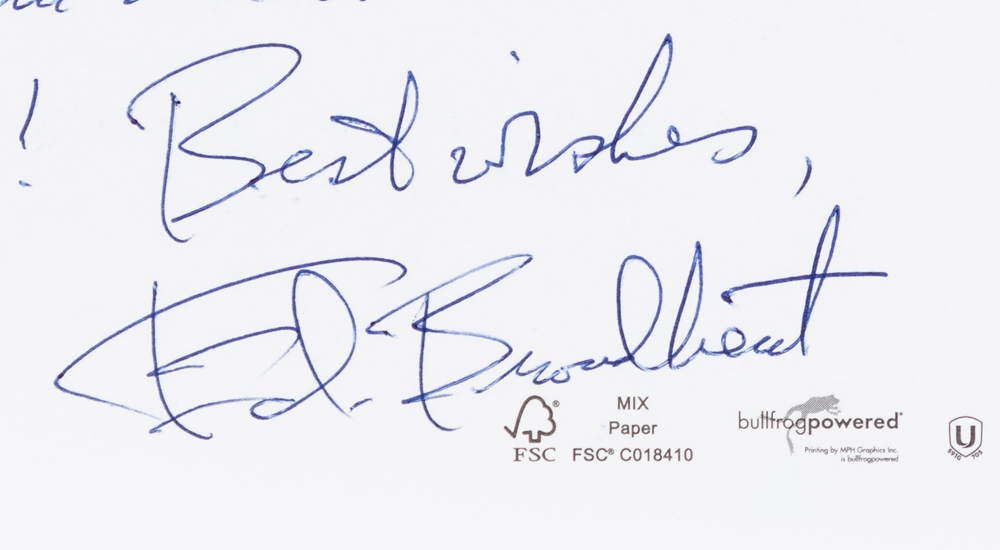 ! Best wishes,
Ed. Broadbent
FSC® MIX
Paper
FSC FSC® C018410
bullfrogpowered®
Printing by MPH Graphics Inc.
is bullfrogpowered
U